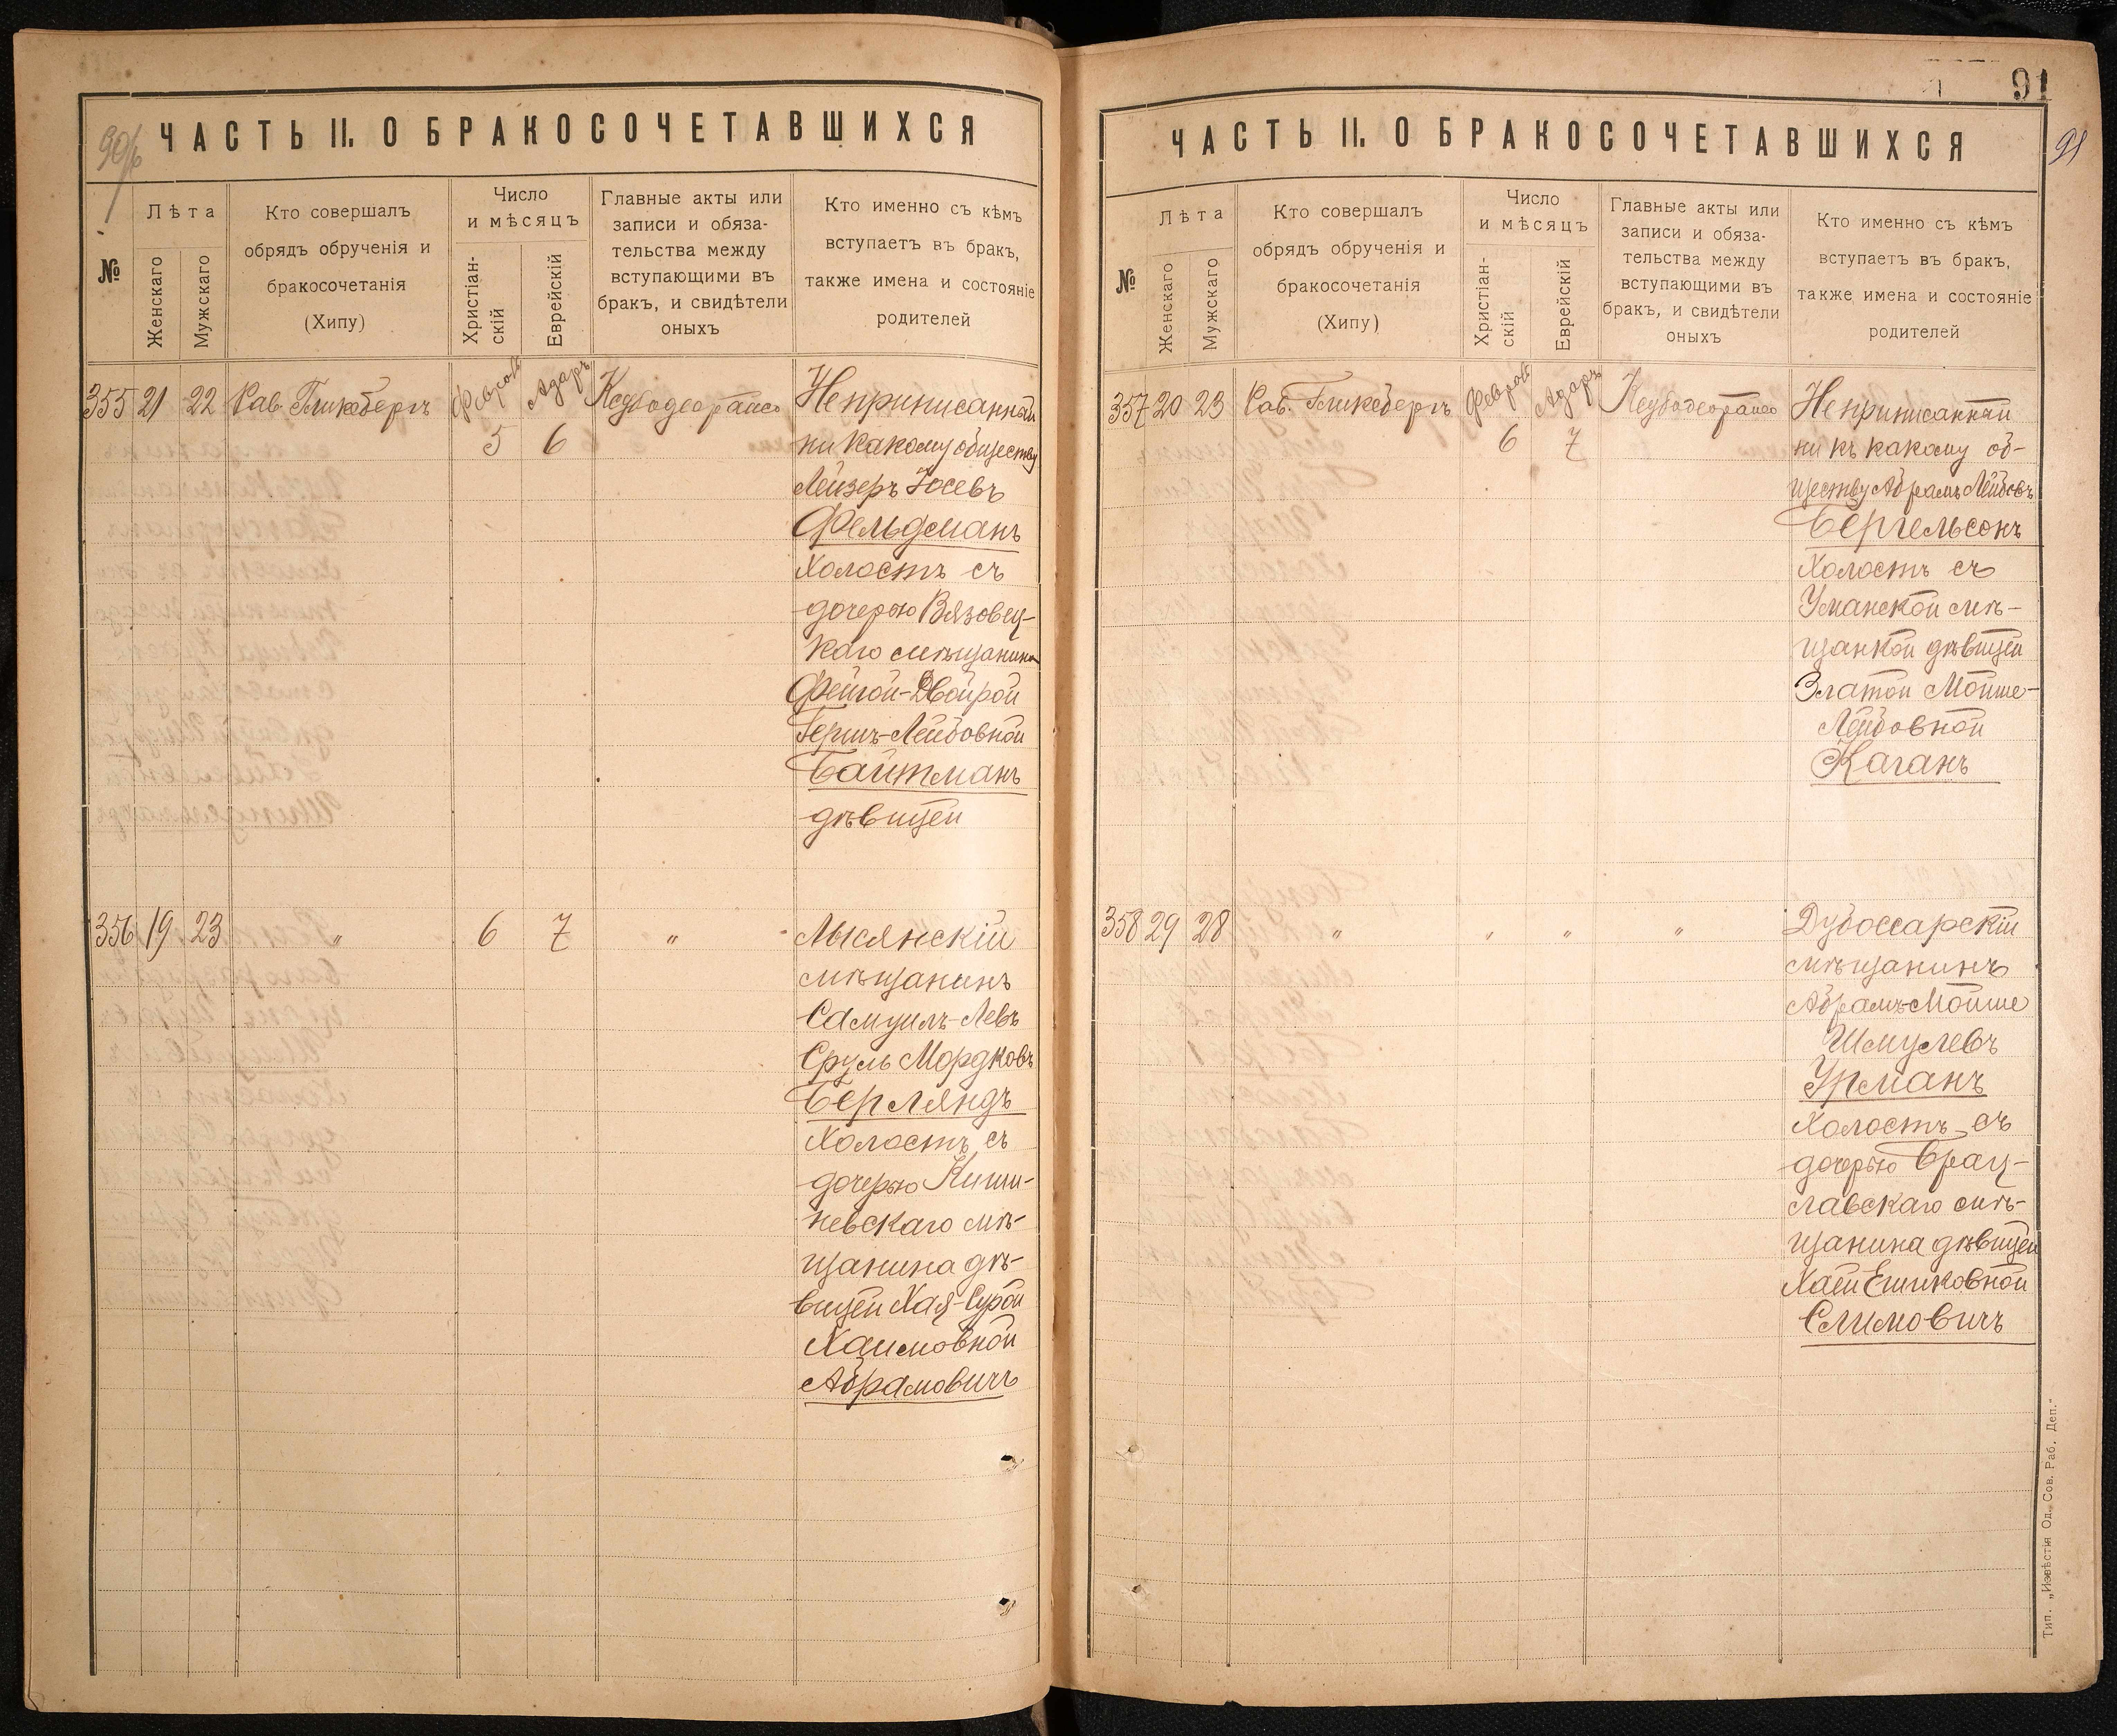 90/6
ЧАСТЬ II. О БРАКОСОЧЕТАВШИХСЯ
№
Лѣта
Женскаго
Мужскаго
Кто совершалъ
обрядъ обрученія и
бракосочетанія
(Хипу)
Число
и мѣсяцъ
Христіан-
скій
Еврейскій
Главные акты или
записи и обяза-
тельства между
вступающими въ
бракъ, и свидѣтели
оныхъ
Кто именно съ кѣмъ
вступаетъ въ бракъ,
также имена и состояніе
родителей
355 21 22 Рав. Гликсбергъ Февраль 5 Адаръ 6
Неприписанный
ни какому обществу
Лейзеръ Іосевъ
Фельдманъ
Холостъ съ
дочерью Вязовец-
каго мѣщанина
Фейгой-Двойрой
Гершъ-Лейбовной
Байтманъ
дѣвицей
356 19 23 " 6 7 "
Лысянскій
мѣщанинъ
Самуилъ-Левъ
Сруль Мордковъ
Берляндъ
Холостъ съ
дочерью Киши-
невскаго мѣ-
щанина дѣ-
вицей Хая-Сурой
Хаимовной
Абрамовичъ
91
91
ЧАСТЬ II. О БРАКОСОЧЕТАВШИХСЯ
№
Лѣта
Женскаго
Мужскаго
Кто совершалъ
обрядъ обрученія и
бракосочетанія
(Хипу)
Число
и мѣсяцъ
Христіан-
скій
Еврейскій
Главные акты или
записи и обяза-
тельства между
вступающими въ
бракъ, и свидѣтели
оныхъ
Кто именно съ кѣмъ
вступаетъ въ бракъ,
также имена и состояніе
родителей
357 20 23 Рав. Гликсбергъ Февраль 6 Адаръ 7
Неприписанный
ни къ какому об-
ществу Абрамъ Лейбовъ
Бергельсонъ
Холостъ съ
Уманской мѣ-
щанкой дѣвицей
Златой Мойше-
Лейбовной
Каганъ
358 29 28 " " " "
Дубоссарскій
мѣщанинъ
Абрамъ-Мойше
Шмулевъ
Урманъ
Холостъ съ
дочерью Брац-
лавскаго мѣ-
щанина дѣвицей
Хаей Ешиковной
Слимовичъ
Тип. „Извѣстія Од. Сов. Раб. Деп."